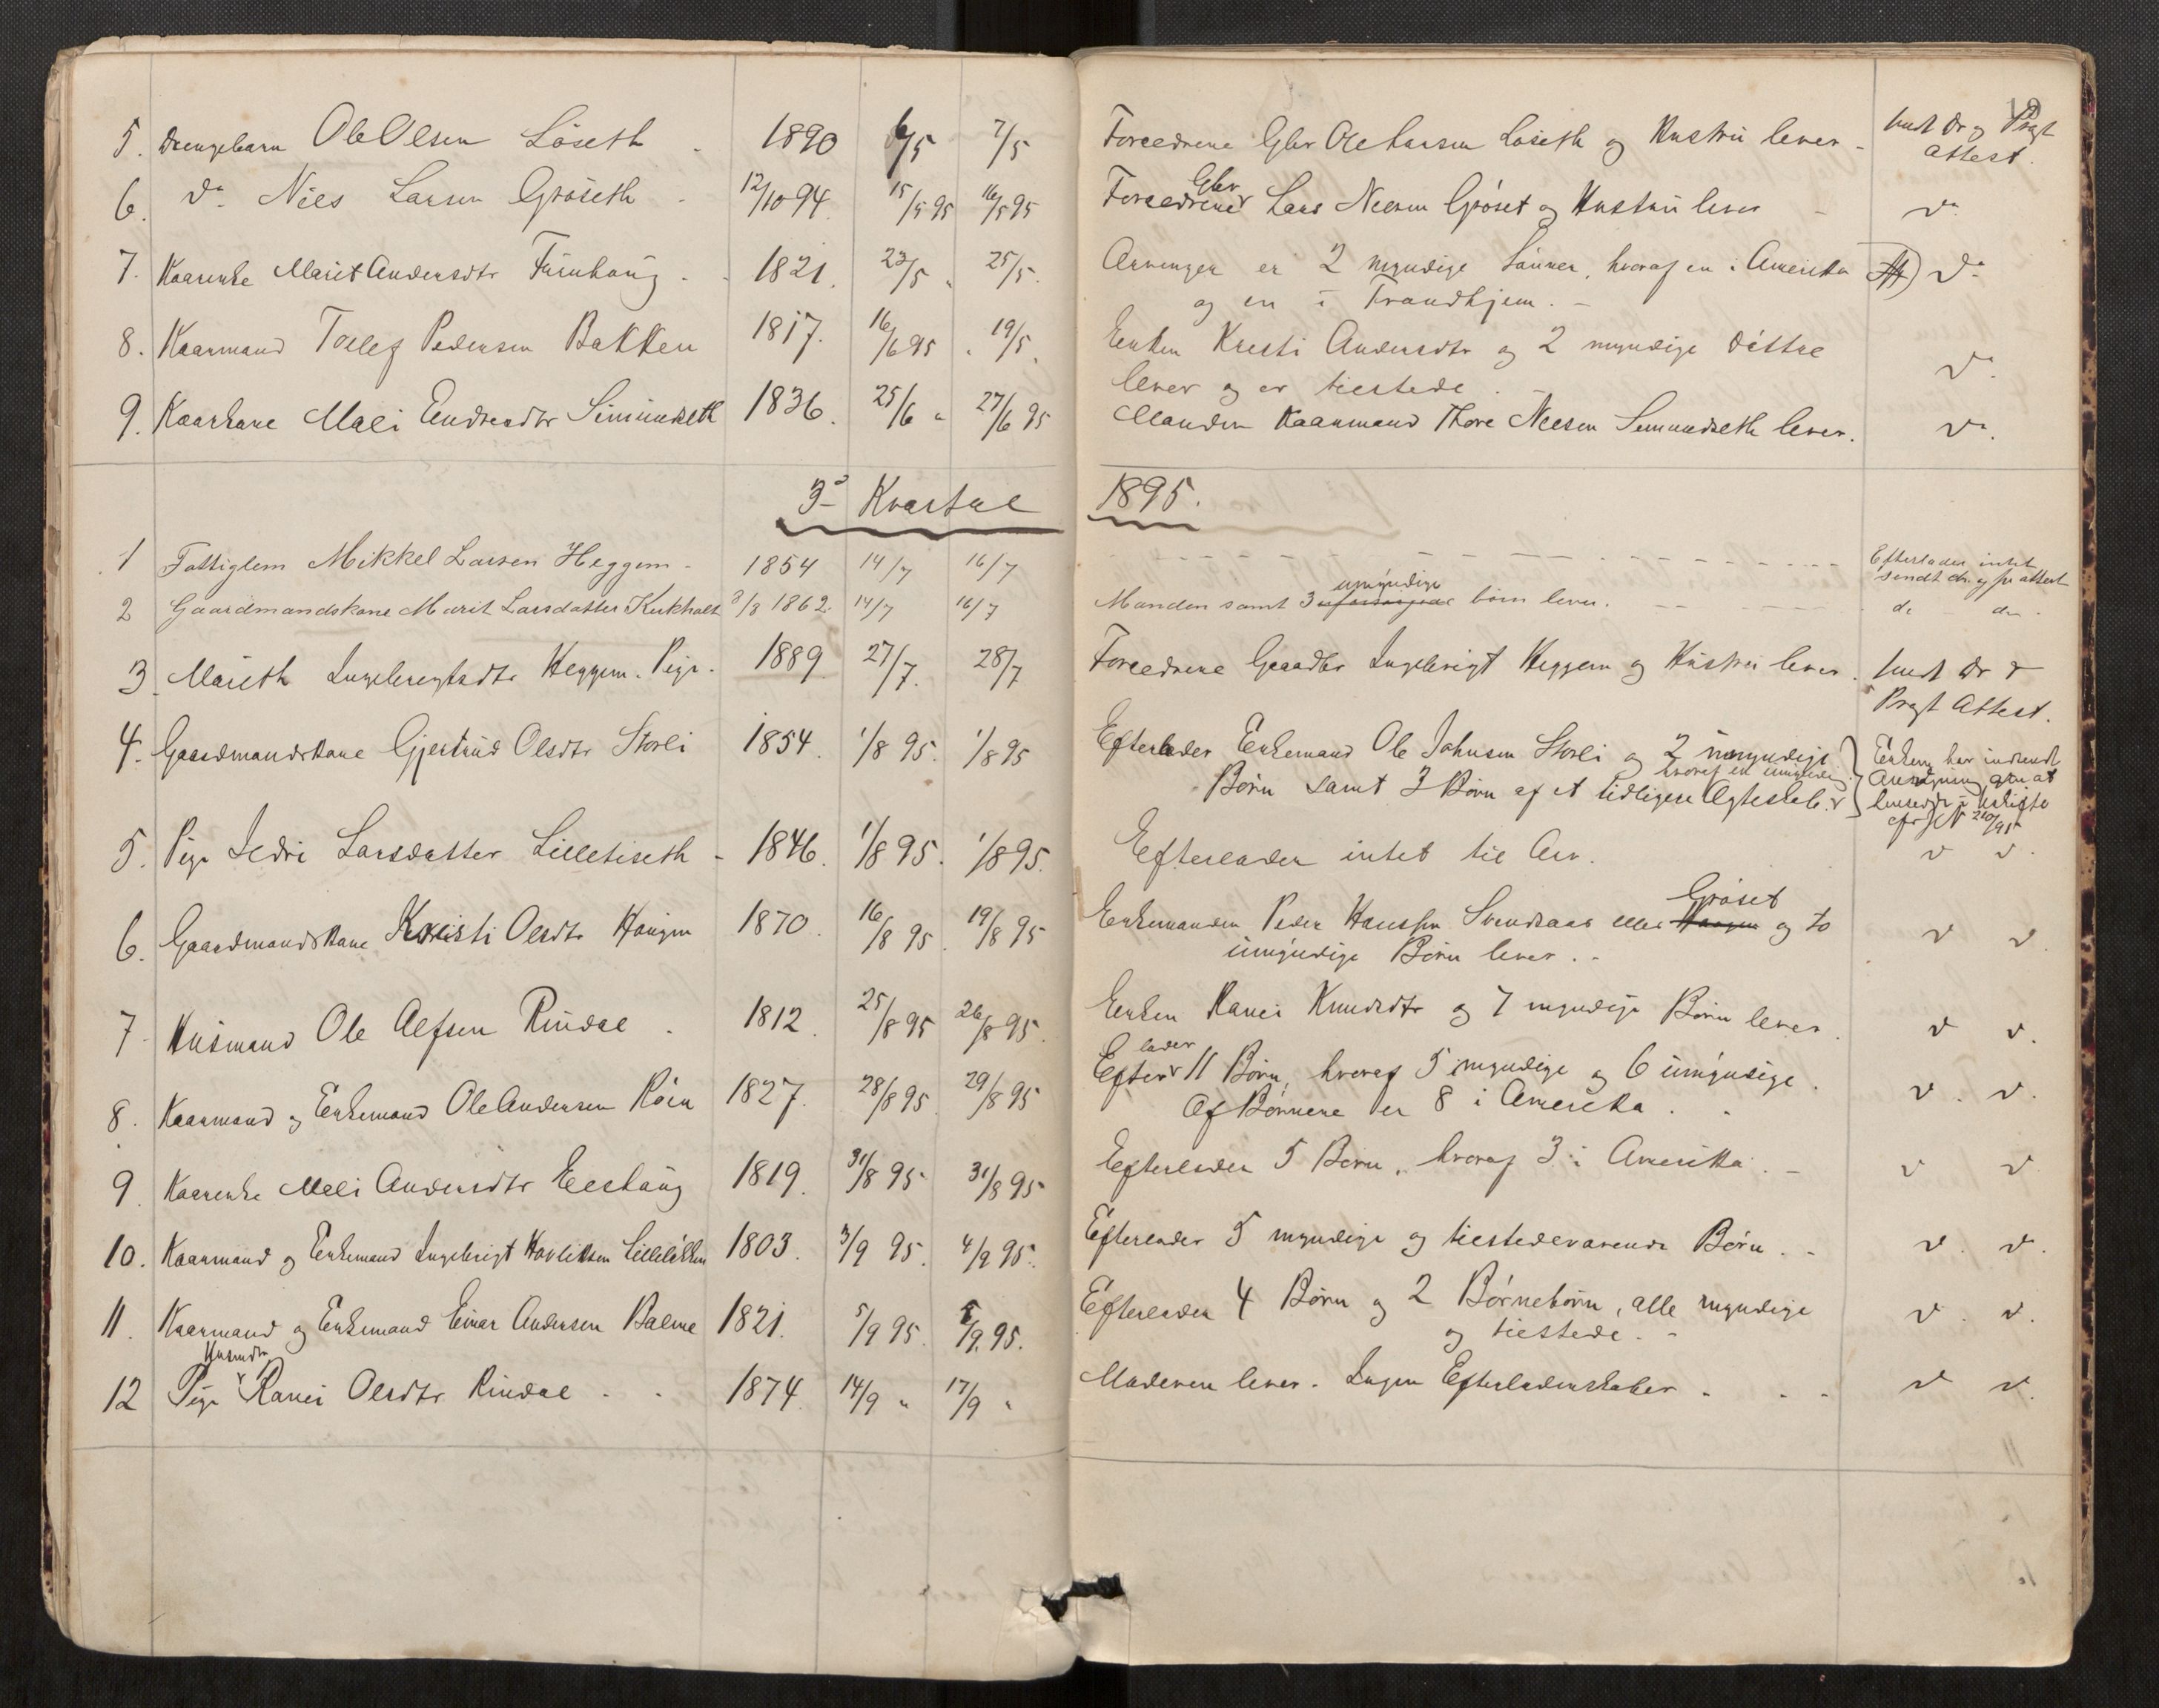 5. Drengebarn Ole Olsen Löseth - 1890 6/5 7/5 Forældrene Gbr Ole Larsen Löseth og Hustru lever - sendt Dr og Prgt
Attest.
6. do Niels Larsen Gröseth - 12/10 94. 15/5 95 16/5 95 Forældrene Gbr Lars Nielsen Gröset og Hustru lever - do
7. Kaarenke Marit Andersdtr Furuhaug - 1821. 23/5 " 25/5. Arvinger er 2 myndige Sönner, hvoraf en i Amerika do
og en i Trondhjem. -
8. Kaarmand Tollef Pedersen Bakken 1817. 16/6 95 19/5. Enken Kristi Andersdtr og 2 myndige Döttre do
lever og er tilstede. -
9. Kaarkone Mali Endresdtr Simundseth 1836. 25/6 " 27/6 95 Manden Kaarmand Thore Nielsen Simundseth lever. do.
3die Kvartal 1895.
1 Fattiglem Mikkel Larsen Heggem - 1854 14/7 16/7 Efterlader intet
sendt dr. og pr attest
2 Gaardmandskone Marit Larsdatter Kirkholt 3/3 1862. 14/7 16/7 Manden samt 3 umyndige börn lever. do do.
3. Marith Ingebrigtsdtr Heggem. Pige. 1889. 27/7. 28/7 Forældrene Gaardbr Ingebrigt Heggem og Hustru lever. sendt Dr &
Prgt Attest.
4. Gaardmandskone Gjertrud Olsdtr Storli 1854. 1/8 95. 1/8 95 Efterlader Enkemand Ole Johnsen Storli og 2 umyndige
hvoraf en umyndig
Börn samt 3 Börn af et tidligere Ægteskab.
Enkem. har indsendt
5. Pige Sedri Larsdatter Lilletiseth - 1846. 1/8 95. 1/8 95. Efterlader intet til Arv. v v.
6. Gaardmandskone Kristi Olsdtr Haugen 1870. 16/8 95. 19/8 95 Enkemanden Peder Hanssen Svendsaas eller Haugen Gröset og to v v.
umyndige Börn lever. -
7. Husmand Ole Alfsen Rindal. 1812. 25/8 95 26/8 95. Enken Ranei Knudsdtr og 7 myndige Börn lever. v v.
8. Kaarmand og Enkemand Ole Andersen Röen 1827. 28/8 95. 29/8 95 Efterlader 11 Börn, hvoraf 5 myndige og 6 umyndige. v. v.
Af Börnene er 8 i Amerika. -
9. Kaarenke Mali Andersdtr Eeshaug 1819. 31/8 95 31/8 95 Efterlader 5 Börn, hvoraf 3 i Amerika. - v v
10. Kaarmand og Enkemand Ingebrigt Havliksen Lillelökken 1803. 3/9 95. 4/9 95. Efterlader 5 myndige og tilstedeværende Börn. - v. v.
11. Kaarmand og Enkemand Einar Andersen Balme 1821. 5/9 95. 5/9. 95. Efterlader 4 Börn og 2 Börnebörn, alle myndige v. v.
og tilstede. -
12 Pige Husmdtr Ranei Olsdtr Rindal. - 1874. 14/9 " 17/9 " Moderen lever. Ingen Efterladenskaber. - v v.